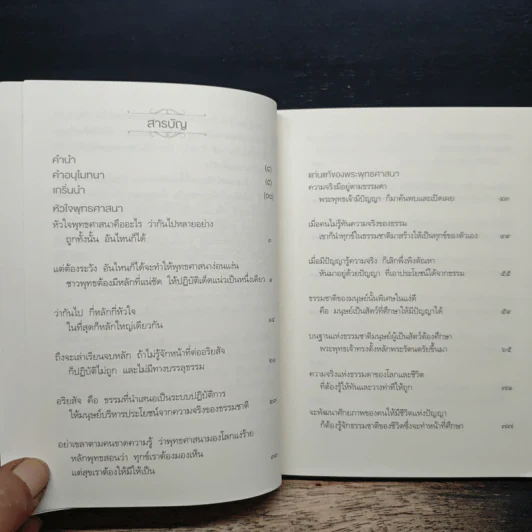 สารบัญ
คำนำ (๔)
คำอนุโมทนา (๕)
เกริ่นนำ
หัวใจพุทธศาสนา
หัวใจพุทธศาสนาคืออะไร ว่ากันไปหลายอย่าง
ถูกทั้งนั้น อันไหนก็ได้ ๓
แต่ต้องระวัง อันไหนก็ได้จะทำให้พุทธศาสนาง่อนแง่น
ชาวพุทธต้องมีหลักที่แน่ชัด ให้ปฏิบัติเด็ดแน่วเป็นหนึ่งเดียว ๙
ว่ากันไป ก็หลักก็หัวใจ
ในที่สุดก็หลักใหญ่เดียวกัน ๑๔
ถึงจะเล่าเรียนจบหลัก ถ้าไม่รู้จักหน้าที่ต่ออริยสัจ
ก็ปฏิบัติไม่ถูก และไม่มีทางบรรลุธรรม
อริยสัจ คือ ธรรมที่นำเสนอเป็นระบบปฏิบัติการ
ให้มนุษย์บริหารประโยชน์จากความจริงของธรรมชาติ
อย่าเขลาตามคนขาดความรู้ ว่าพุทธศาสนามองโลกแง่ร้าย
หลักพุทธสอนว่า ทุกข์เราต้องมองเห็น
แต่สุขเราต้องให้มีให้เป็น
แก่นแท้ของพระพุทธศาสนา
ความจริงมีอยู่ตามธรรมดา
พระพุทธเจ้ามีปัญญา ก็มาค้นพบและเปิดเผย ๔๓
เมื่อคนไม่รู้ทันความจริงของธรรม
เขาก็นำทุกข์ในธรรมชาติมาสร้างให้เป็นทุกข์ของตัวเอง
เมื่อมีปัญญารู้ความจริง ก็เลิกพึ่งพิงตัณหา
หันมาอยู่ด้วยปัญญา ที่เอาประโยชน์ได้จากธรรม ๕๕
ธรรมชาติของมนุษย์นั้นพิเศษในแง่ดี
คือ มนุษย์เป็นสัตว์ที่ศึกษาให้มีปัญญาได้
บนฐานแห่งธรรมชาติมนุษย์ผู้เป็นสัตว์ต้องศึกษา
พระพุทธเจ้าทรงตั้งหลักพระรัตนตรัยขึ้นมา ๖๕
ความจริงแห่งธรรมดาของโลกและชีวิต
ที่ต้องรู้ให้ทันและวางท่าทีให้ถูก ๗๑
จะพัฒนาศักยภาพของคนให้มีชีวิตแห่งปัญญา
ก็ต้องรู้จักธรรมชาติของชีวิตซึ่งจะทำหน้าที่ศึกษา